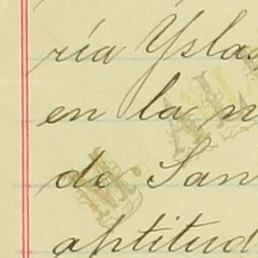 ría Yslas
en la n
de San
aptitud
M. AL